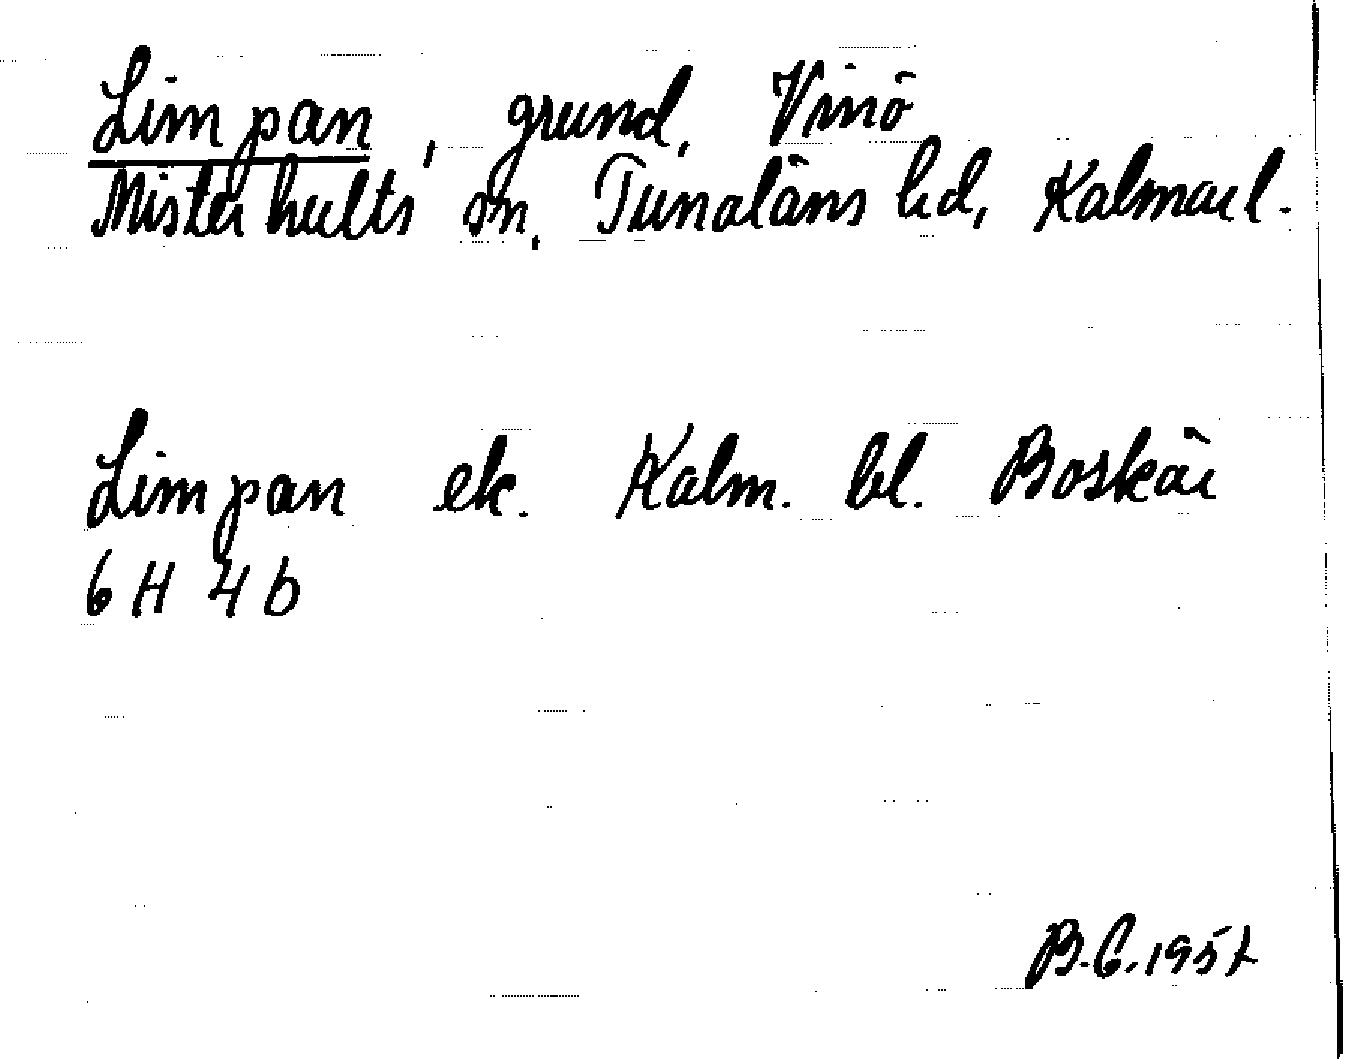 Limpan, grund, Vinö
Misterhults sn, Tunaläns hd, Kalmar l.
Limpan ek. Kalm. bl. Boskär
6 H 4 b
B.G. 1957